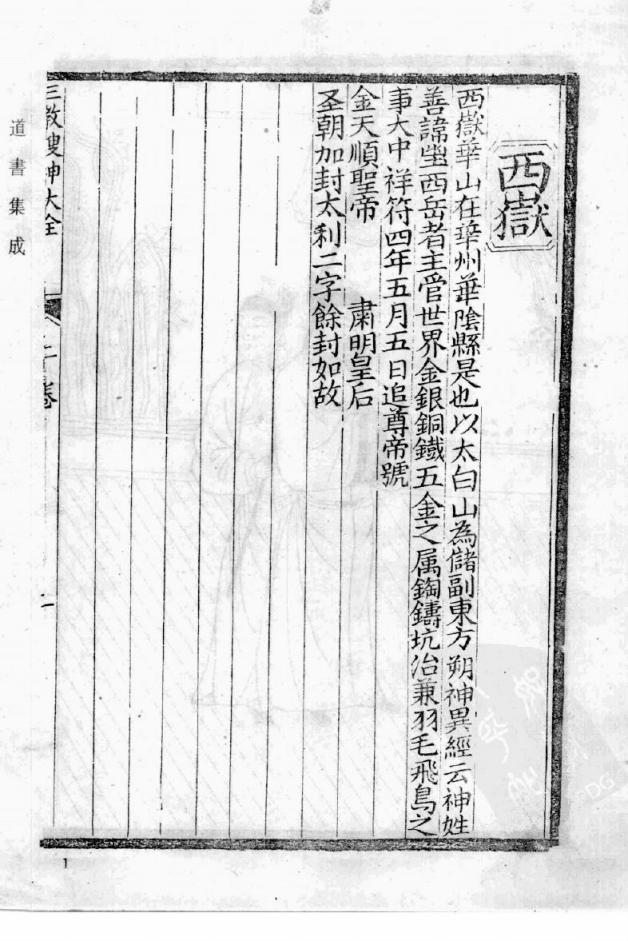 西嶽
西嶽華山在華州華陰縣是也以太白山為儲副東方朔神異經云神姓
善諱𡊉西岳者主管世界金銀銅鐵五金之属鋾鑄坑冶兼羽毛飛鳥之
事大中祥符四年五月五日追尊帝號
金天順聖帝 肅明皇后
圣朝加封太利二字餘封如故
三教搜神大全
卷
道書集成
1